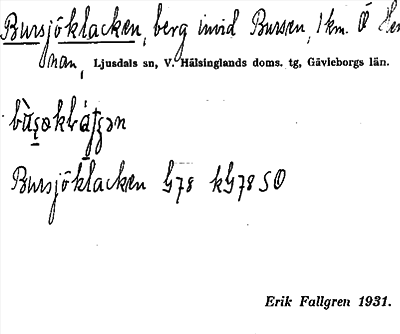 Bursjöklacken, berg invid Bursen, 1 km. Ö
nan, Ljusdals sn, V. Hälsinglands doms. tg, Gävleborgs län.
Bursjöklacken G78 kG78 SO
Erik Fallgren 1931.